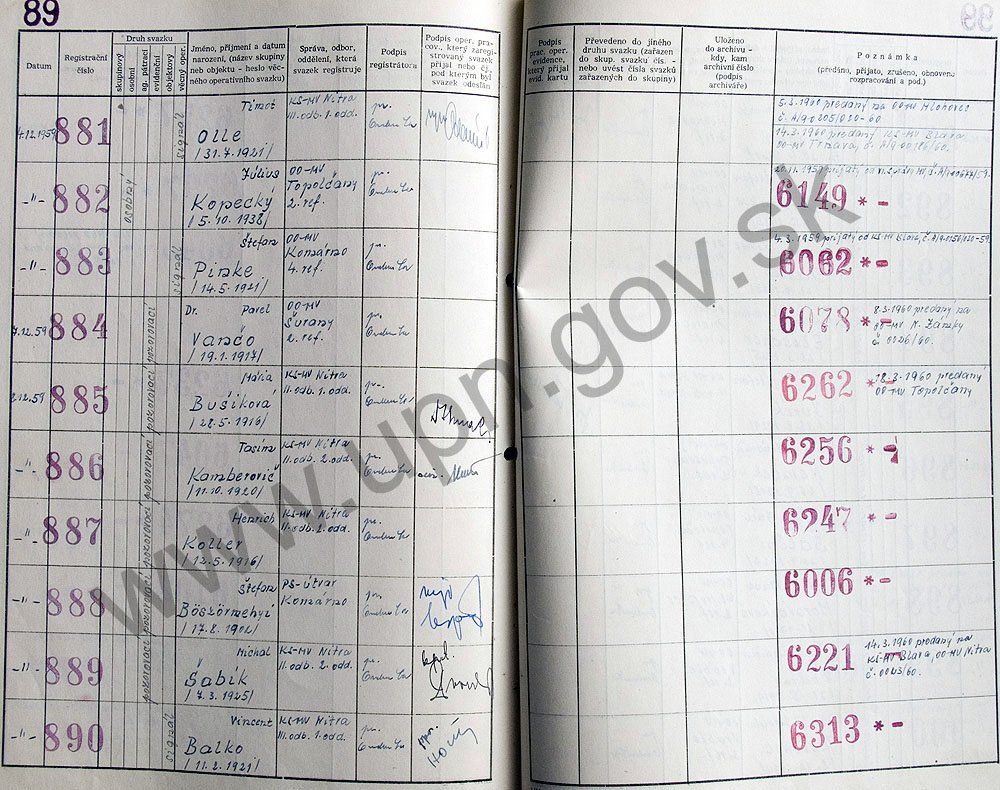 89
Datum
Registrační číslo
Druh svazku
skupinový
osobní
ag. pátrací
evidenční
objektový
věcný oper.
Jméno, příjmení a datum
narození, (název skupiny
neb objektu - heslo věc-
ného operativního svazku)
Správa, odbor,
oddělení, která
svazek registruje
Podpis
registrátora
Podpis oper. pra-
cov., který zaregi-
strovaný svazek
přijal nebo čj.,
pod kterým byl
svazek odeslán
Podpis
prac. oper.
evidence,
který přijal
evid. kartu
Převedeno do jiného
druhu svazku (zařazen
do skup. svazku čís. -
nebo uvést čísla svazků
zařazených do skupiny)
Uloženo
do archivu -
kdy, kam
archivní číslo
(podpis
archiváře)
Poznámka
(předáno, přijato, zrušeno, obnoveno
rozpracování a pod.)
4.12.1959 881 signál Timot
Olle
/31.7.1921/
KS-MV Nitra
III. odb. 1. odd.
5.3.1960 predaný na OO-MV Hlohovec
č. A/9-0205/020-60
14.3.1960 predaný KS-MV Blava
OO-MV Trnava, č. A/9-00186/60.
-"- 882 osobný Július
Kopecký
/5.10.1938/
OO-MV
Topoľčany
2. ref.
6149 * -
-"- 883 signál Štefan
Pinke
/14.5.1921/
OO-MV
Komárno
4. ref.
6062 * -
7.12.59 884 pozorovací Dr. Pavel
Vančo
/19.1.1917/
OO-MV
Šurany
2. ref.
6078 * -
8.3.1960 predaný na
OO-MV N. Zámky
č. 0026/60.
885 pozorovací Mária
Bušíková
/28.5.1916/
KS-MV Nitra
II. odb. 1. odd.
6262 * -
18.3.1960 predaný
OO-MV Topoľčany
-"- 886 pozorovací
Kamberovič
/11.10.1920/
KS-MV Nitra
II. odb. 2. odd.
6256 * -
-"- 887 pozorovací Henrich
Koller
/12.5.1916/
KS-MV Nitra
II. odb. 2. odd.
6247 * -
-"- 888 pozorovací Štefan
Böszörmehyi
PS-útvar
Komárno
6006 * -
-"- 889 pozorovací Michal
Šabík
/7.3.1925/
KS-MV Nitra
II. odb. 2. odd.
6221
14.3.1960 predaný na
KS-MV Blava, OO-MV Nitra
č. 0023/60.
-"- 890 signál Vincent
Balko
/11.2.1921/
KS-MV Nitra
III. odb. 1. odd.
6313 * -
www.upn.gov.sk